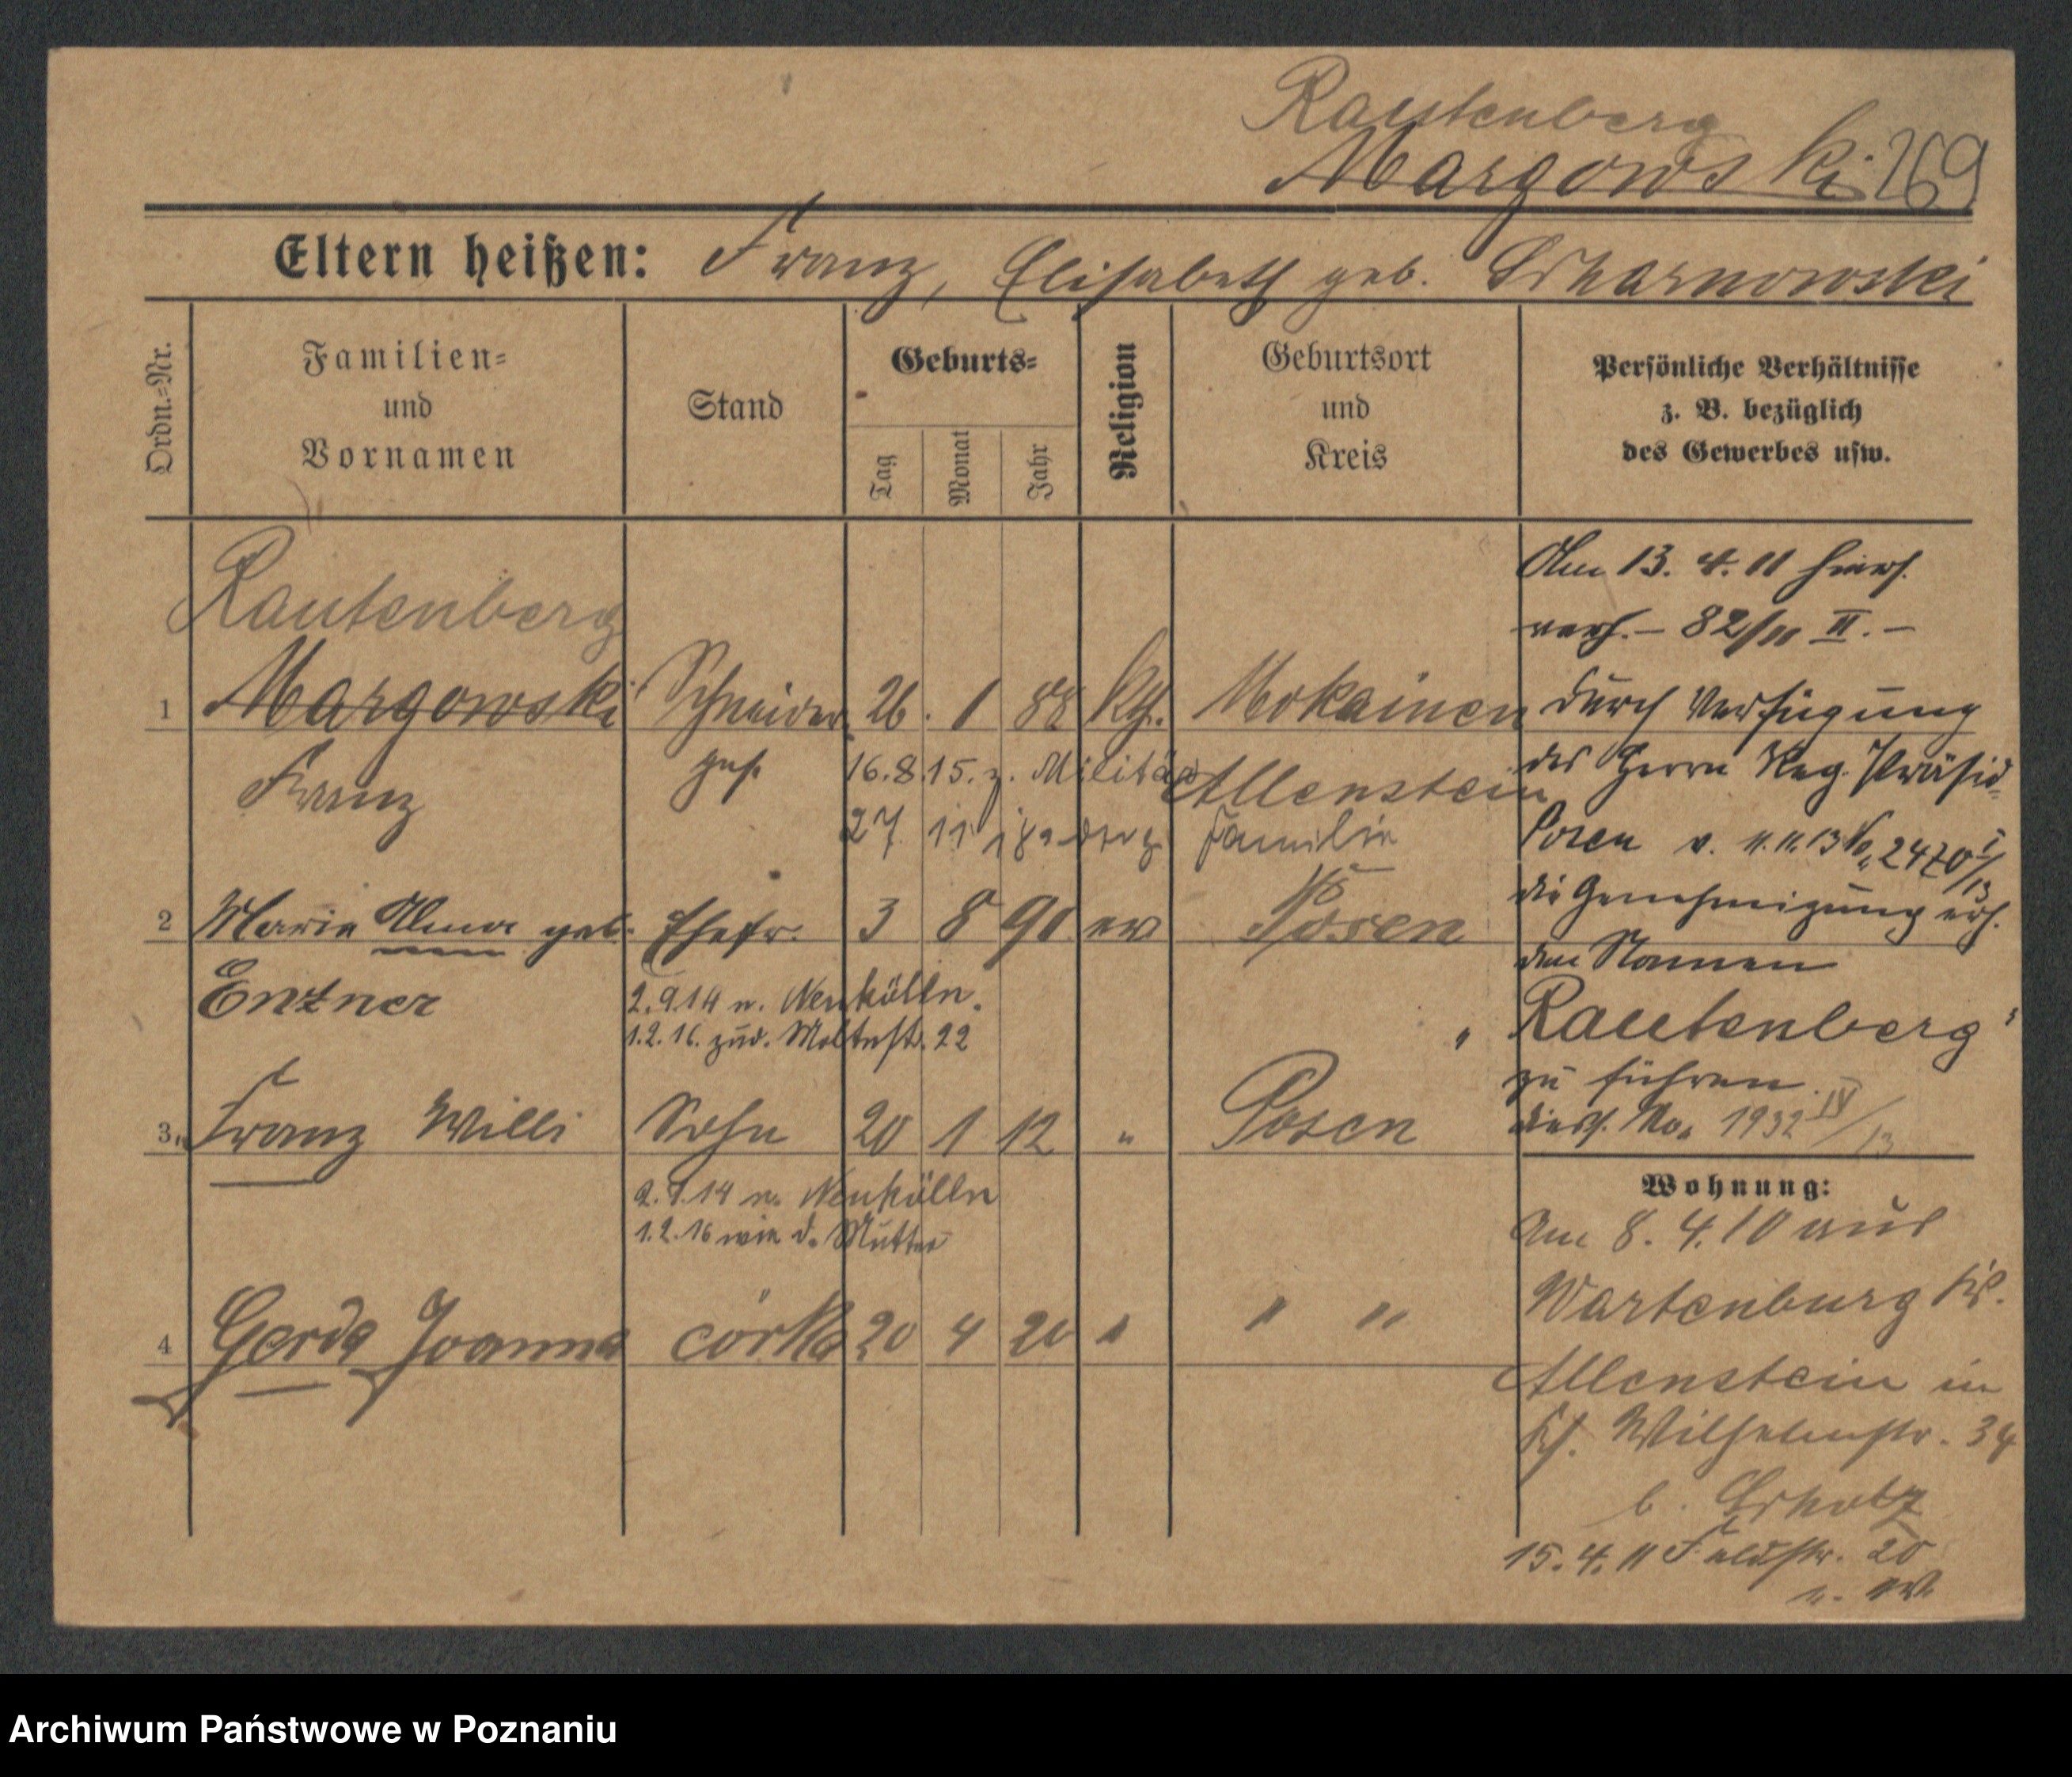 Rautenberg
Margowski 269
Eltern heißen: Franz, Elisabeth geb. Scharnowski
Ordn.-Nr.
Familien-
und
Vornamen
Stand
Geburts-
Tag
Monat
Jahr
Religion
Geburtsort
und
Kreis
Persönliche Verhältnisse
z. B. bezüglich
des Gewerbes usw.
Rautenberg
1 Margowski Schneider 26. 1 88 kth. Mokainen
Franz geh. Allenstein
16.8.15. z. Militär
27 11 18 Familie
2 Marie Alma geb. Ehefr. 3 8 90 ev Posen
Entner
2.9.14 n. Neukölln.
1.2.16. zur. Moltkestr. 22
3. Franz Willi Sohn 20 1 12 " Posen
2.9.14 n. Neukölln
1.2.16 wie d. Mutter
4 Gerda Joanna córka 20 4 20 " " "
Am 13. 4. 11 hiers.
verh. – 82/11 II. –
Durch Verfügung
des Herrn Reg. Präsid.
Posen v. 11.11.13 No. 2470 I/13
die Genehmigung erh.
den Namen
"Rautenberg"
zu führen.
diess. No. 1932 IV/13
Wohnung:
Am 8. 4. 10 aus
Wartenburg Kr.
Allenstein in
Wilhelmstr. 34
b.
15. 4. 11 Feldstr. 20
Archiwum Państwowe w Poznaniu